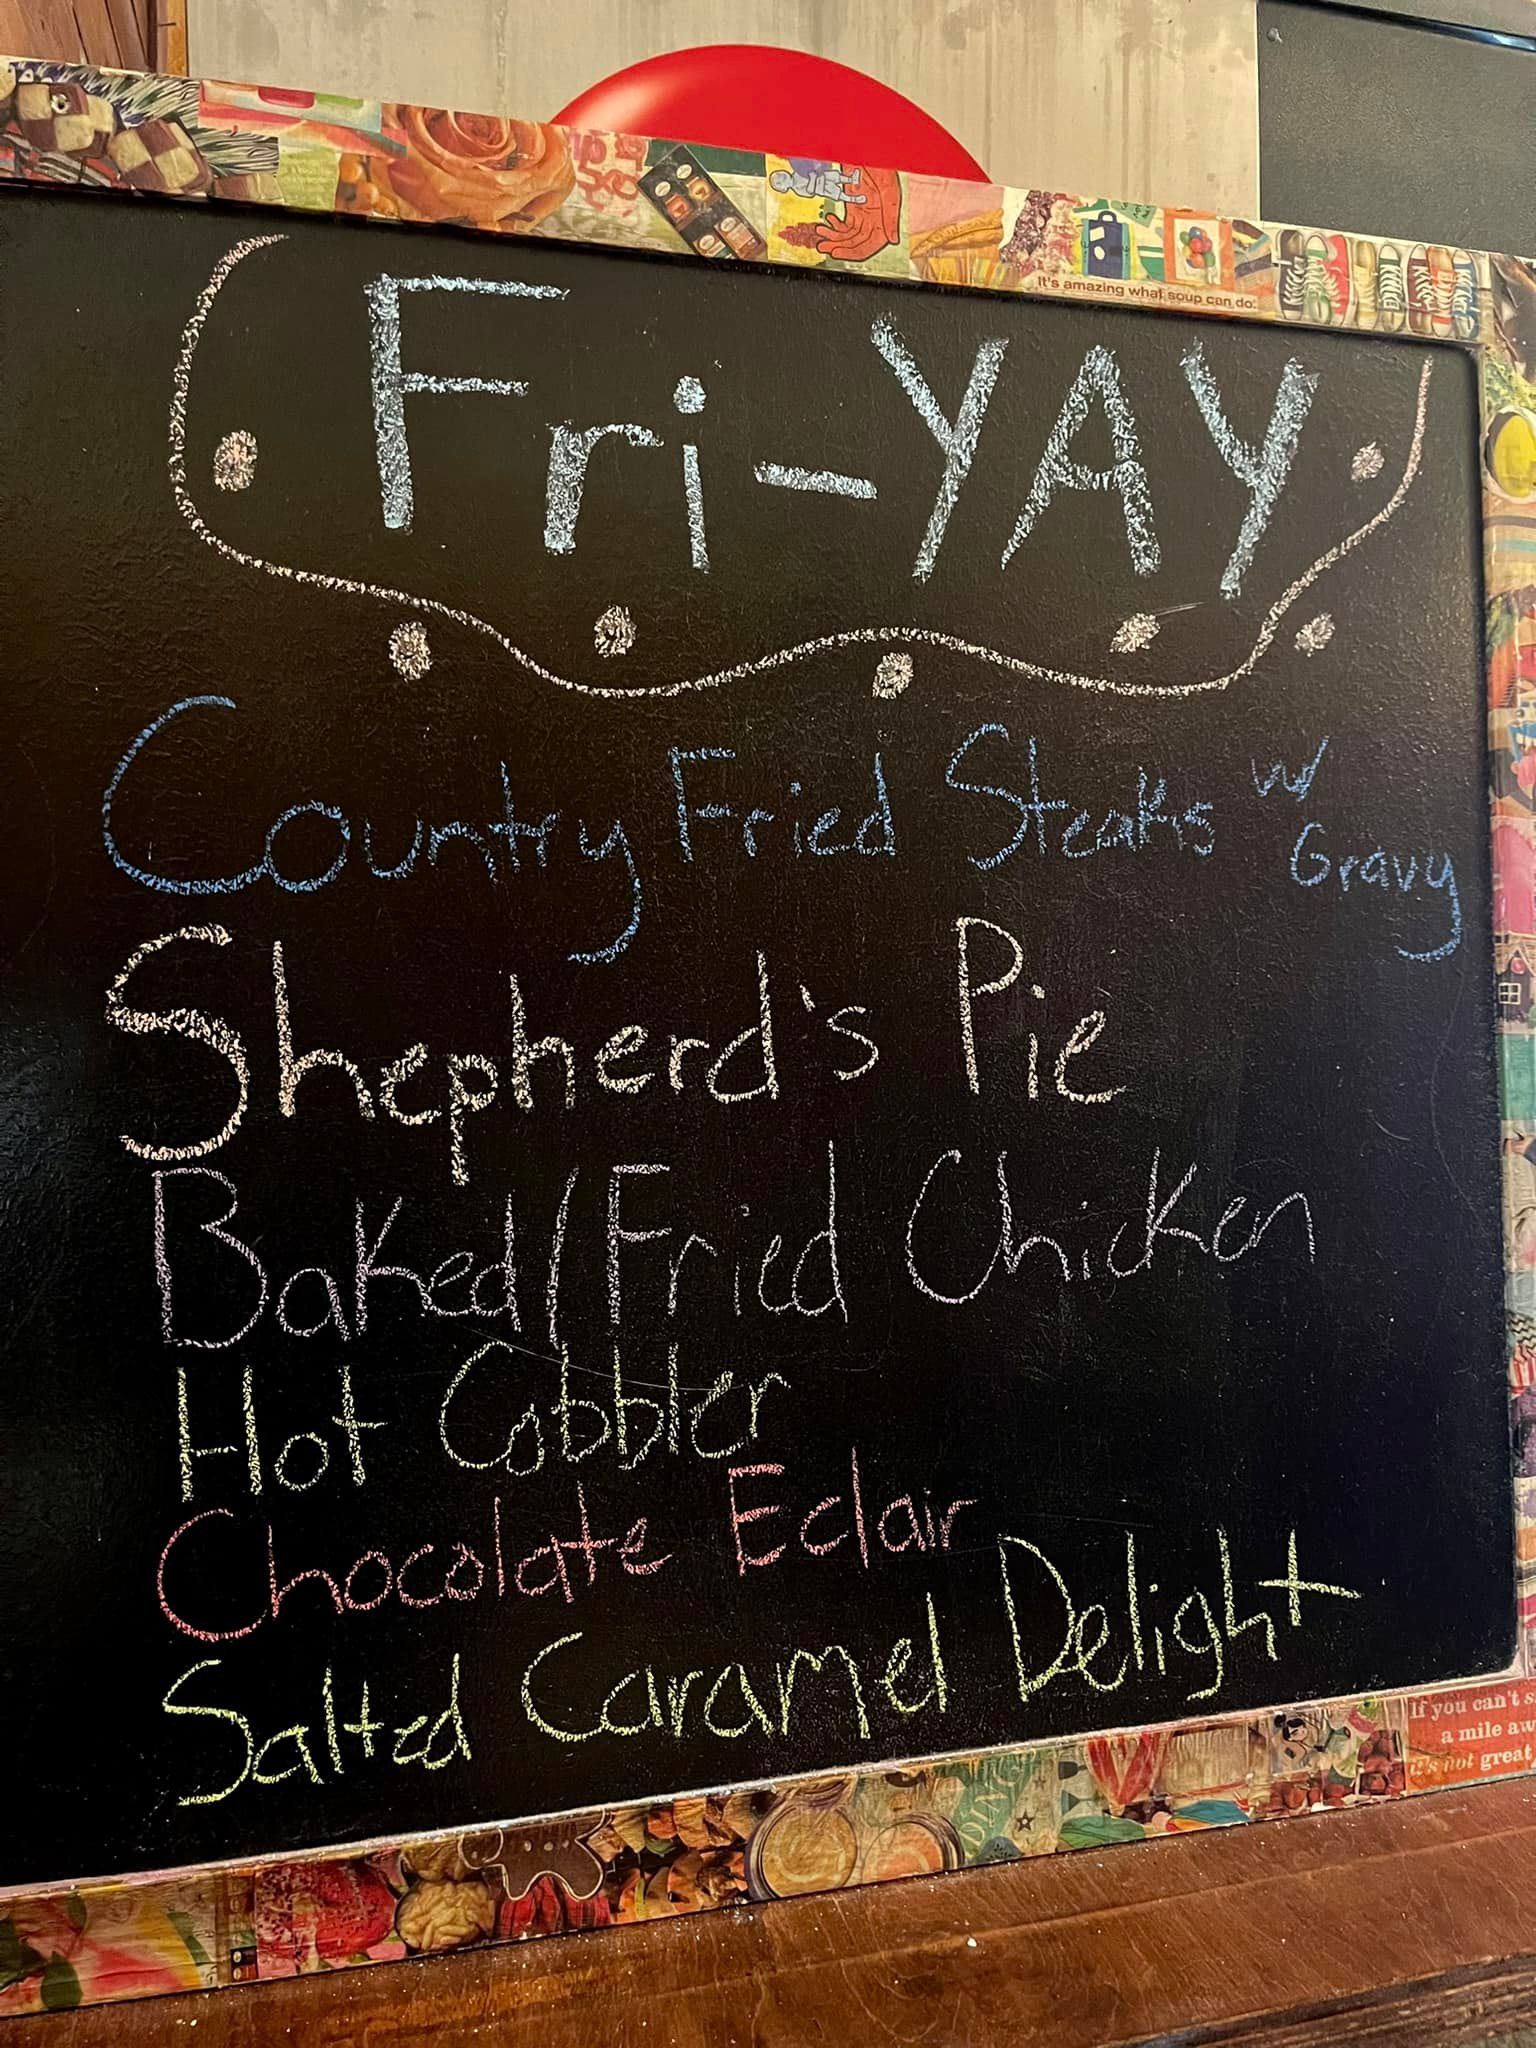 It's amazing what soup can do.
Fri-YAY
Country Fried Steaks w/
Gravy
Shepherd's Pie
Baked/Fried Chicken
Hot Cobbler
Chocolate Eclair
Salted Caramel Delight
If you can't
a mile
it's not great
DING